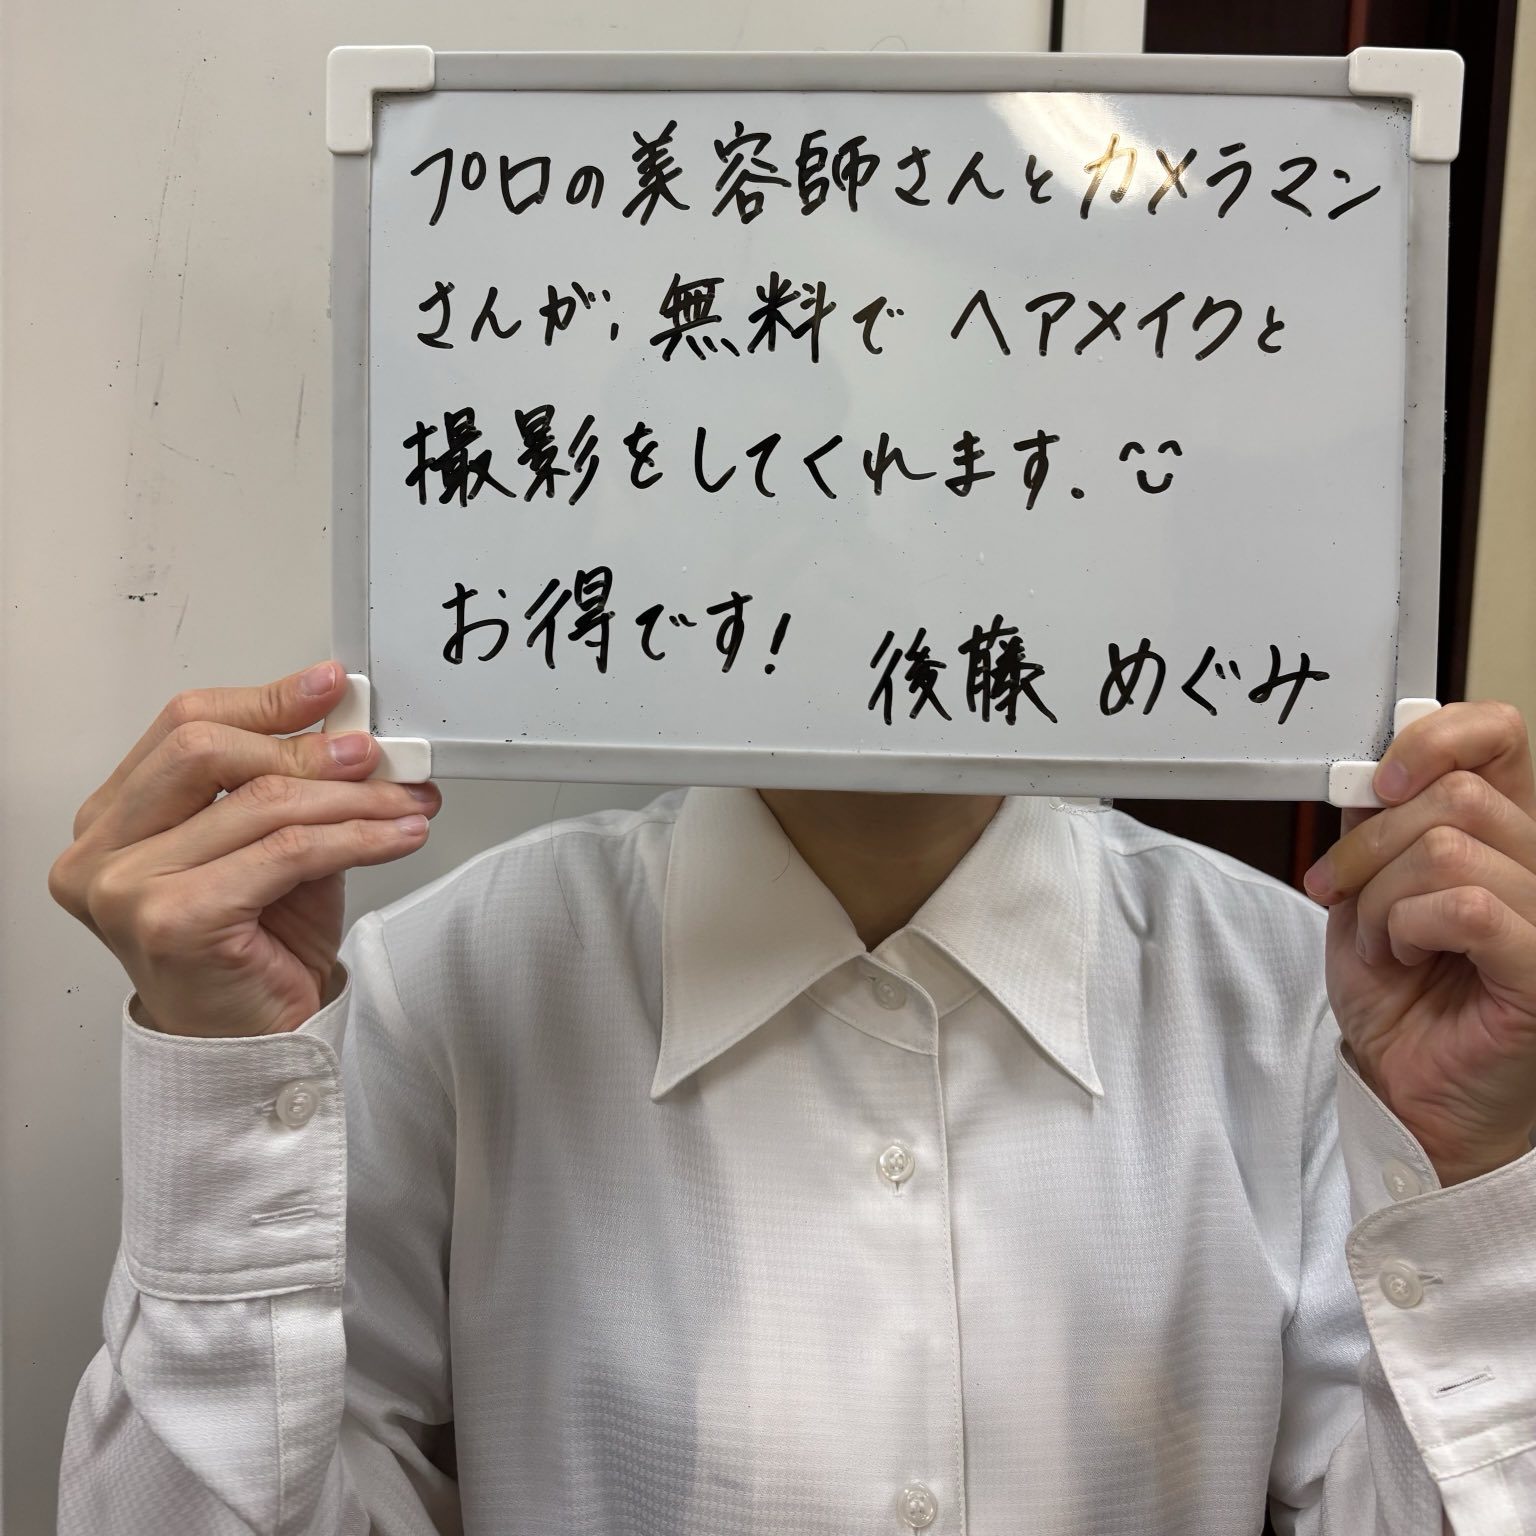 プロの美容師さんとカメラマン
さんが、無料で ヘアメイクと
撮影をしてくれます. ^^
お得です! 後藤 めぐみ